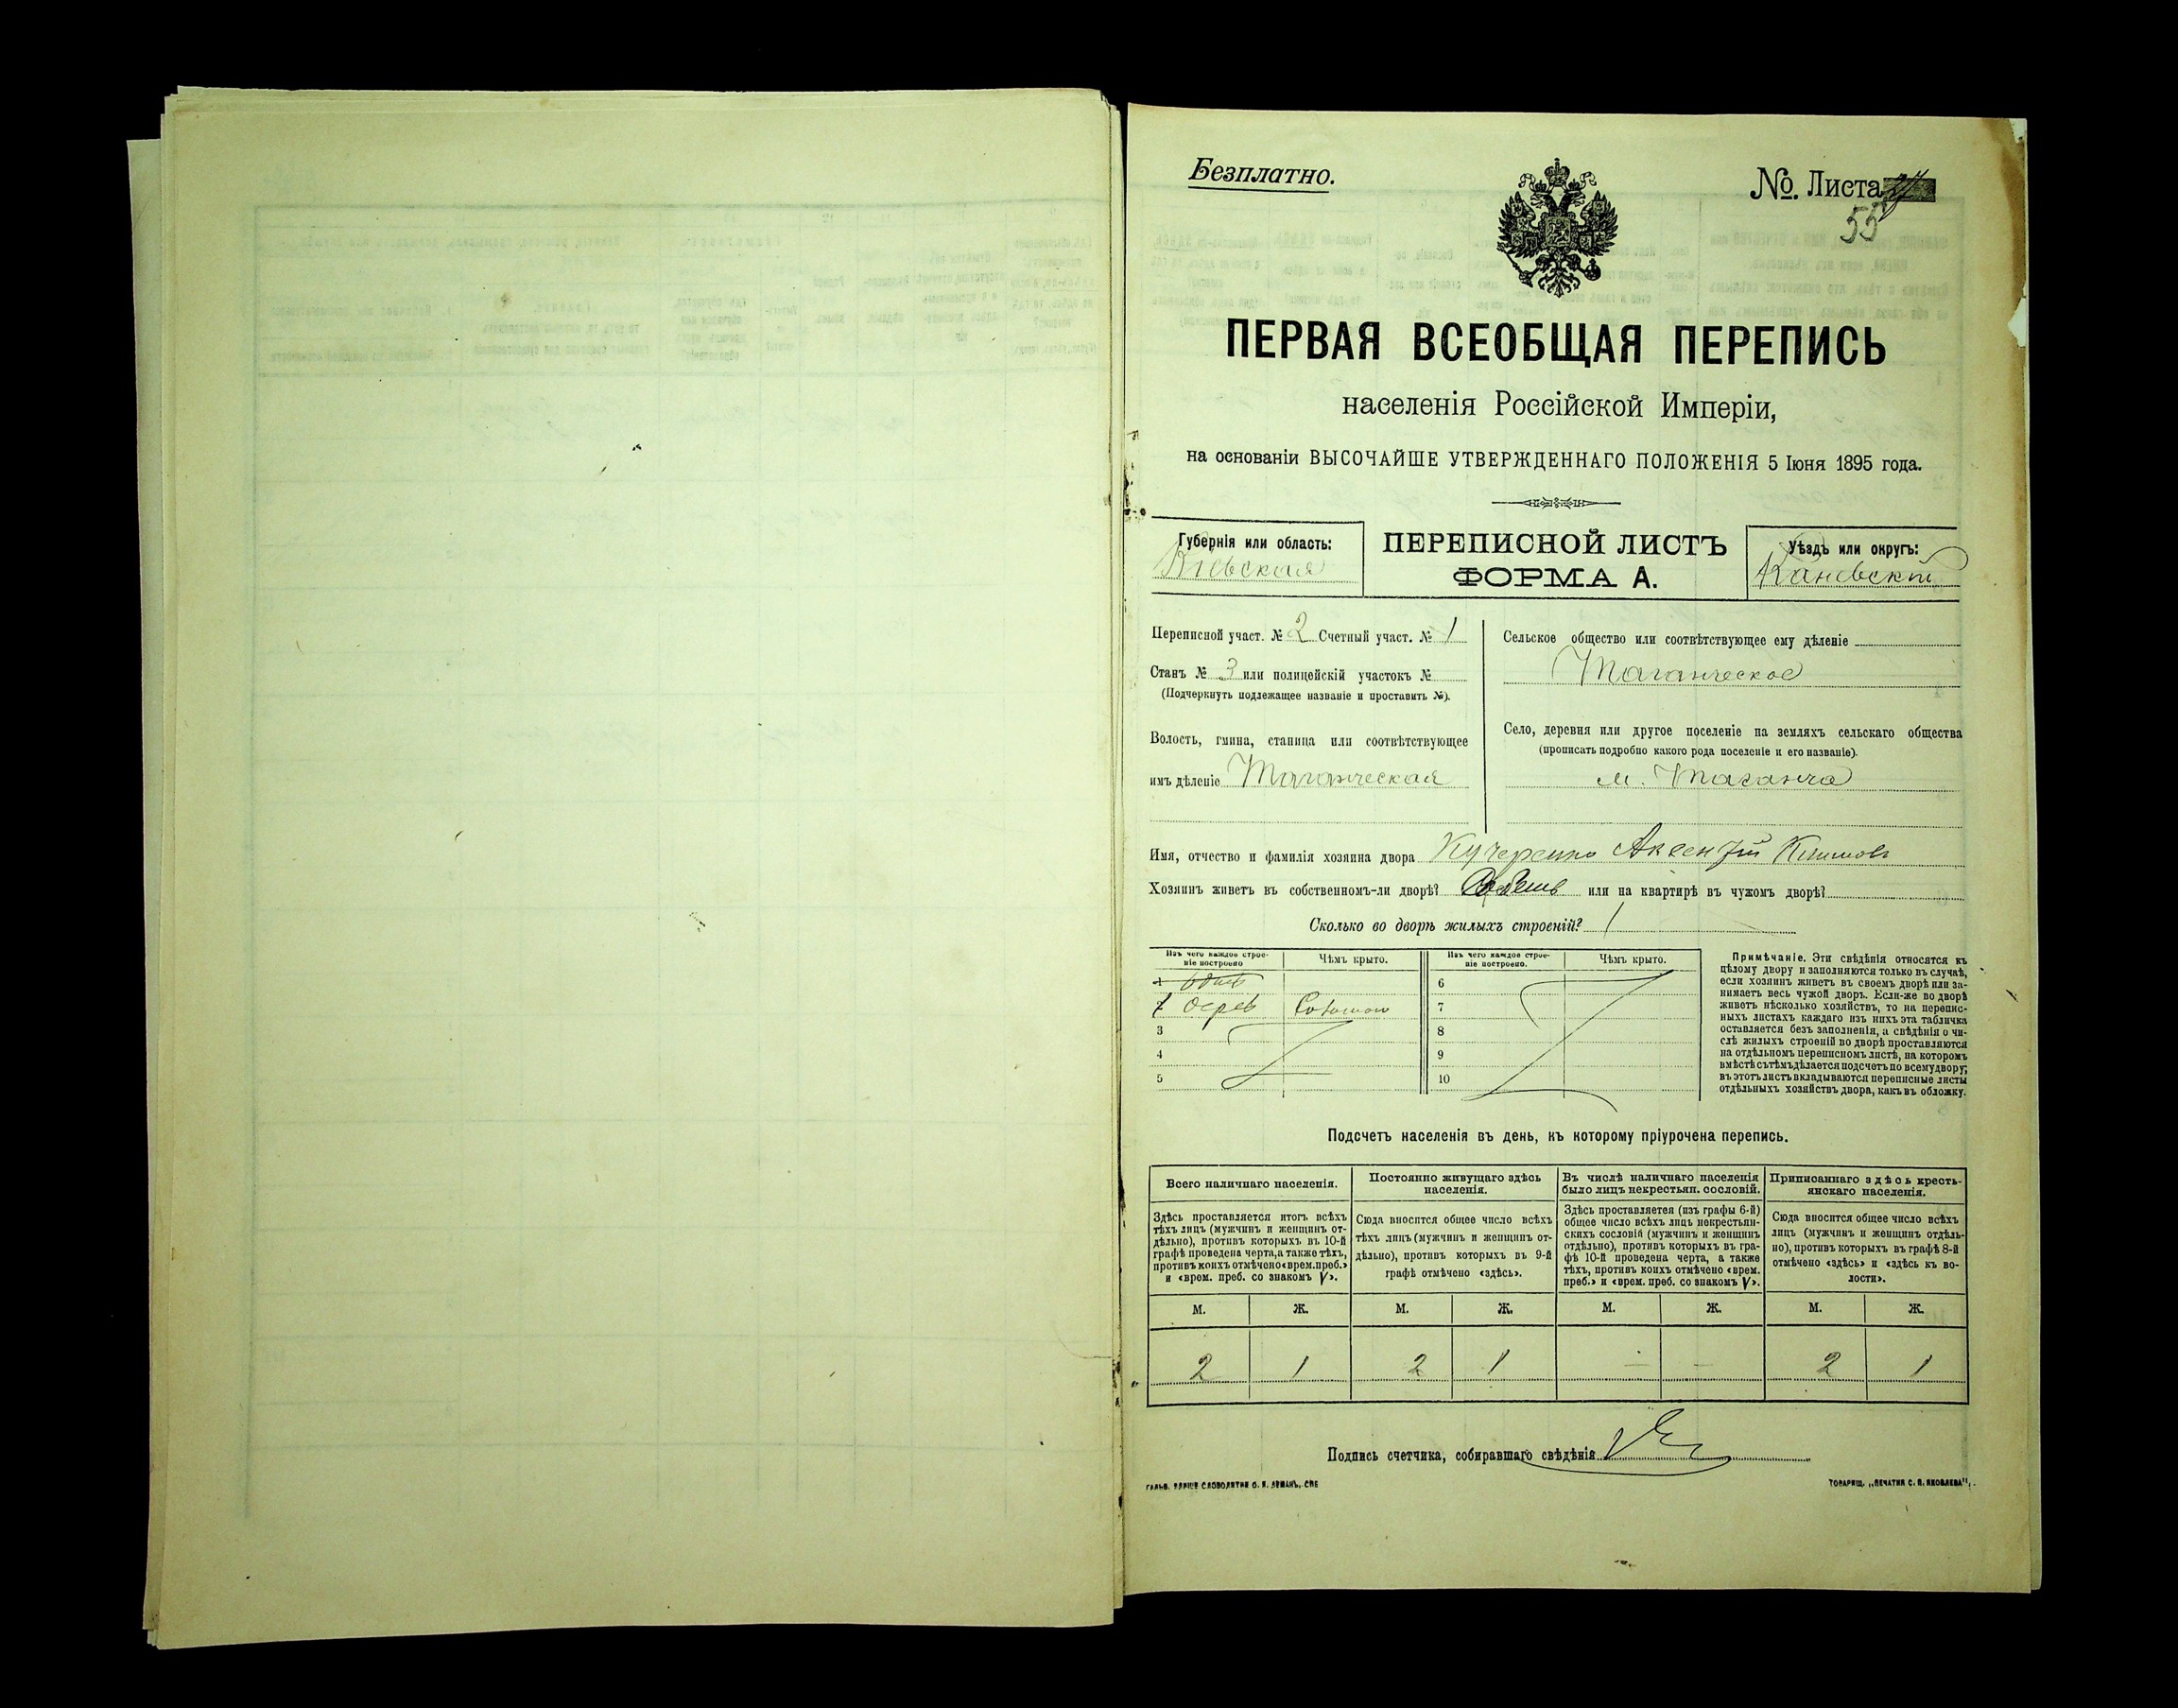 Безплатно.
№. Листа
55
ПЕРВАЯ ВСЕОБЩАЯ ПЕРЕПИСЬ
населенія Россійской Имперіи,
на основаніи ВЫСОЧАЙШЕ УТВЕРЖДЕННАГО ПОЛОЖЕНІЯ 5 Іюня 1895 года.
Губернія или область:
Кіевская
ПЕРЕПИСНОЙ ЛИСТЪ
ФОРМА А.
Уѣздъ или округъ:
Каневскій
Переписной участ. № 2 Счетный участ. № 1
Станъ № 3 или полицейскій участокъ №
(Подчеркнуть подлежащее названіе и проставить №).
Волость, гмина, станица или соотвѣтствующее
имъ дѣленіе Таганческая
Сельское общество или соотвѣтствующее ему дѣленіе
Таганческое
Село, деревня или другое поселеніе на земляхъ сельскаго общества
(прописать подробно какого рода поселеніе и его названіе).
м. Таганча
Имя, отчество и фамилія хозяина двора Кучеренко Аксентій Климовъ
Хозяинъ живетъ въ собственномъ-ли дворѣ? или на квартирѣ въ чужомъ дворѣ?
Сколько во дворѣ жилыхъ строеній? 1
Изъ чего каждое строеніе построено
Чѣмъ крыто.
Изъ чего каждое строеніе построено.
Чѣмъ крыто.
1
2 дерев Соломою
3
4
5
6
7
8
9
10
Примѣчаніе. Эти свѣдѣнія относятся къ
цѣлому двору и заполняются только въ случаѣ,
если хозяинъ живетъ въ своемъ дворѣ или за-
нимаетъ весь чужой дворъ. Если-же во дворѣ
живетъ нѣсколько хозяйствъ, то на перепис-
ныхъ листахъ каждаго изъ нихъ эта табличка
оставляется безъ заполненія, а свѣдѣнія о чи-
слѣ жилыхъ строеній во дворѣ проставляются
на отдѣльномъ переписномъ листѣ, на которомъ
вмѣстѣ съ тѣмъ дѣлается подсчетъ по всему двору;
въ этотъ листъ вкладываются переписные листы
отдѣльныхъ хозяйствъ двора, какъ въ обложку.
Подсчетъ населенія въ день, къ которому пріурочена перепись.
Всего наличнаго населенія.
Здѣсь проставляется итогъ всѣхъ
тѣхъ лицъ (мужчинъ и женщинъ от-
дѣльно), противъ которыхъ въ 10-й
графѣ проведена черта, а также тѣхъ,
противъ коихъ отмѣчено «врем. преб.»
и «врем. преб. со знакомъ V».
Постоянно живущаго здѣсь
населенія.
Сюда вносится общее число всѣхъ
тѣхъ лицъ (мужчинъ и женщинъ от-
дѣльно), противъ которыхъ въ 9-й
графѣ отмѣчено «здѣсь».
Въ числѣ наличнаго населенія
было лицъ некрестьян. сословій.
Здѣсь проставляется (изъ графы 6-й)
общее число всѣхъ лицъ некрестьян-
скихъ сословій (мужчинъ и женщинъ
отдѣльно), противъ которыхъ въ гра-
фѣ 10-й проведена черта, а также
тѣхъ, противъ коихъ отмѣчено «врем.
преб.» и «врем. преб. со знакомъ V».
Приписаннаго здѣсь кресть-
янскаго населенія.
Сюда вносится общее число всѣхъ
лицъ (мужчинъ и женщинъ отдѣль-
но), противъ которыхъ въ графѣ 8-й
отмѣчено «здѣсь» и «здѣсь къ во-
лости».
М. Ж. М. Ж. М. Ж. М. Ж.
2 1 2 1 — — 2 1
Подпись счетчика, собиравшаго свѣдѣнія
ТОВАРИЩ. „ПЕЧАТНЯ С. П. ЯКОВЛЕВА“.